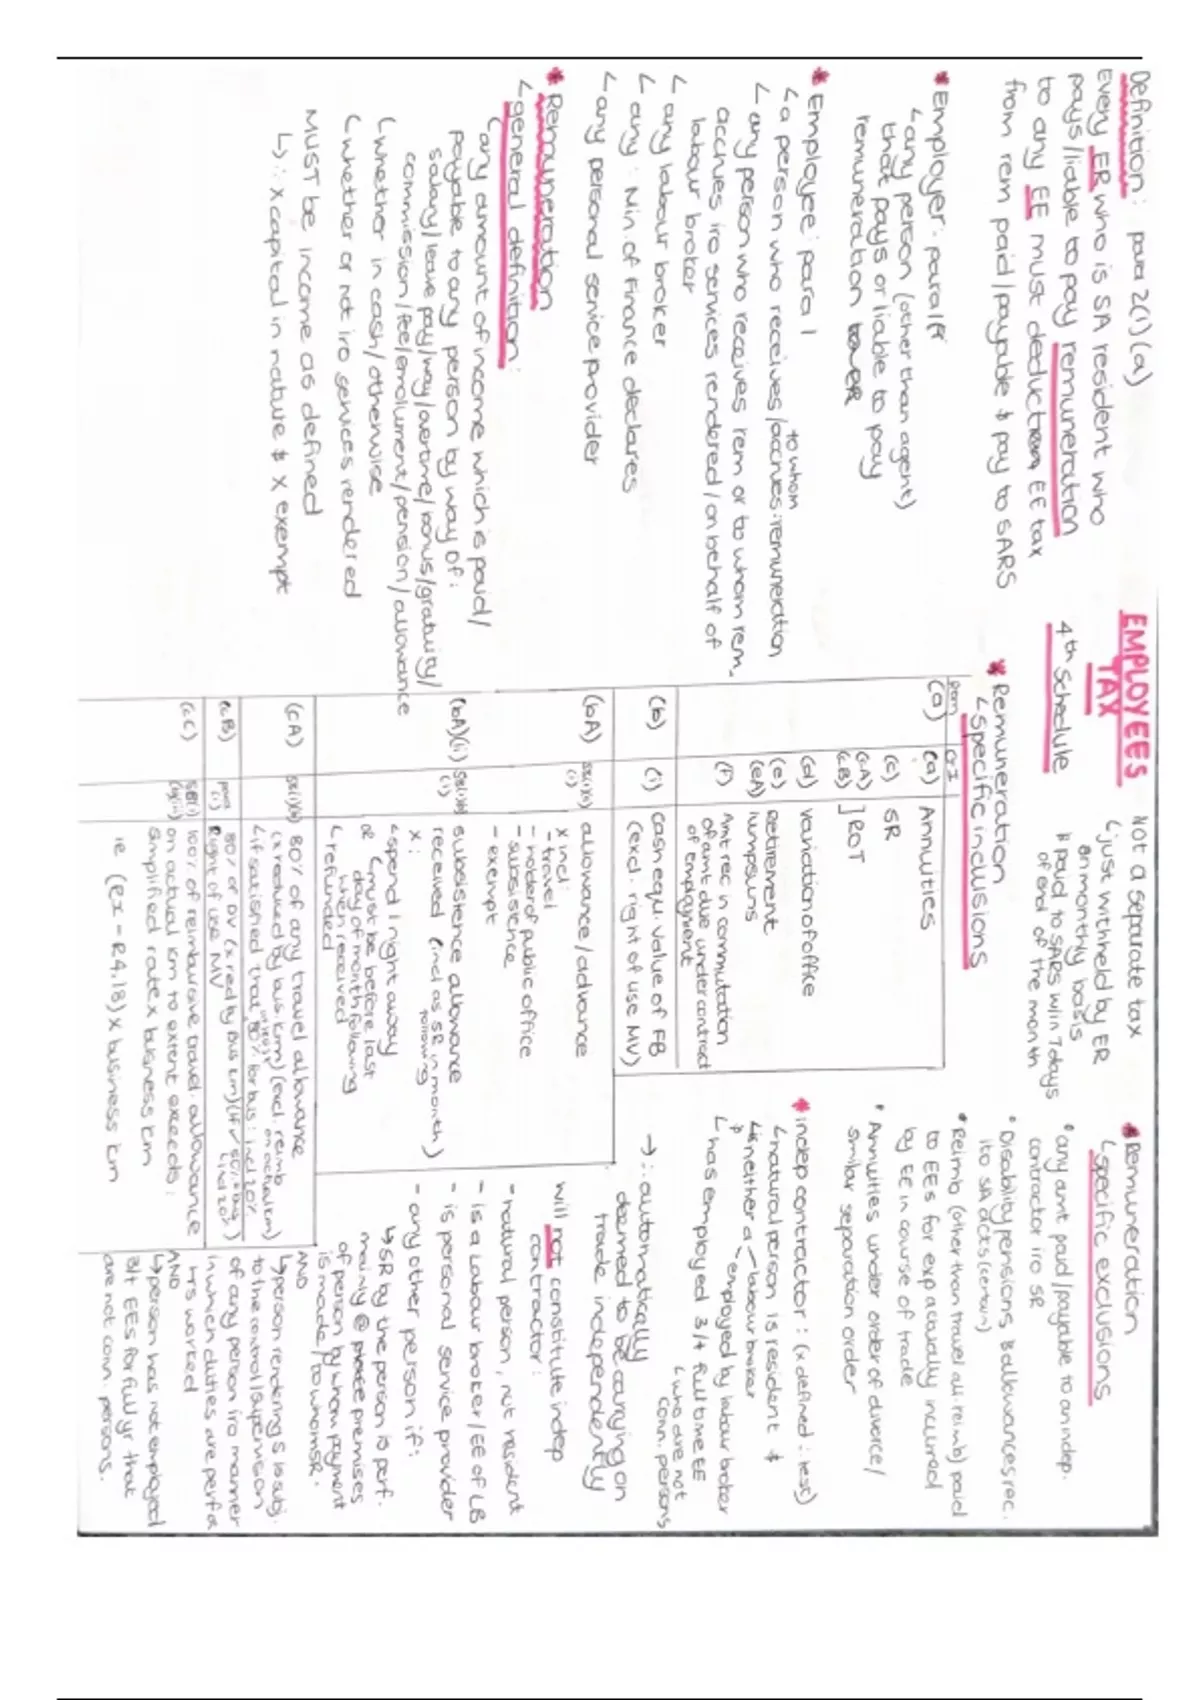 EMPLOYEES
TAX
4th Schedule
NOT a separate tax
↳ just withheld by ER
on monthly basis
& paid to SARS w/in 7 days
of end of the month
Definition: para 2(1)(a)
Every ER who is SA resident who
pays/liable to pay remuneration
to any EE must deduct EE tax
from rem paid/payable & pay to SARS
* Employer: para 1
↳ any person (other than agent)
that pays or liable to pay
remuneration
* Employee: para 1
↳ a person who receives/accrues: remuneration
to whom
↳ any person who receives rem or to whom rem.
accrues iro services rendered/on behalf of
labour broker
↳ any labour broker
↳ any: Min. of Finance declares
↳ any personal service provider
* Remuneration
↳ general definition:
↳ any amount of income which is paid/
payable to any person by way of:
salary/leave pay/wag/overtime/bonus/gratuity/
commission/fee/emolument/pension/allowance
↳ whether in cash/otherwise
↳ whether or not iro services rendered
MUST be income as defined
↳ ∴ x capital in nature & x exempt
* Remuneration
↳ specific inclusions
(a) (a) Annuities
(c) SR
(cA)
(cB) ] ROT
(d) Variation of office
(e) Retirement
(eA) lumpsums
(f) Amt rec in commutation
of amt due under contract
of employment
(b) (i) cash equ. value of FB
(excl. right of use MV)
(bA) S8(1)(a)(i) allowance/advance
x incl:
- travel
- holder of public office
- subsistence
- exempt
(bA)(ii) subsistence allowance
received (incl as SR in month)
following
x:
↳ spend 1 night away
or ↳ must be before last
day of month following
when received
↳ refunded
(cA) S8(1)(b) 80% of any travel allowance
(x reduced by bus. km) (excl. reimb
on actual km)
↳ if satisfied that 80% for bus: incl 20%
(cB) 80% of DV (x red by bus km) (if 80% bus
↳ incl 20%)
Right of use MV
(cC) 100% of reimbursive travel allowance
on actual km to extent exceeds:
simplified rate x business km
ie (ex - R4.18) x business km
* Remuneration
↳ specific exclusions
• any amt paid/payable to an indep.
contractor iro SR
• Disability pensions & allowances rec.
ito SA acts (certain)
• Reimb (other than travel all. reimb) paid
to EEs for exp actually incurred
by EE in course of trade
• Annuities under order of divorce/
similar separation order
* Indep contractor: (x defined: test)
↳ natural person is resident &
↳ is neither a - labour broker
- employed by labour broker
↳ has employed 3/+ full time EE
↳ who are not
conn. persons
→ ∴ automatically
deemed to be carrying on
trade independently
will not constitute indep
contractor:
- natural person, not resident
- is a Labour broker/EE of LB
- is personal service provider
- any other person if:
↳ SR by the person is perf.
mainly @ premises
of person by whom payment
is made/to whom SR.
AND
↳ person rendering S is subj.
to the control/supervision
of any person iro manner
in which duties are perf &
hrs worked
AND
↳ person has not employed
3/+ EEs for full yr that
are not conn. persons.